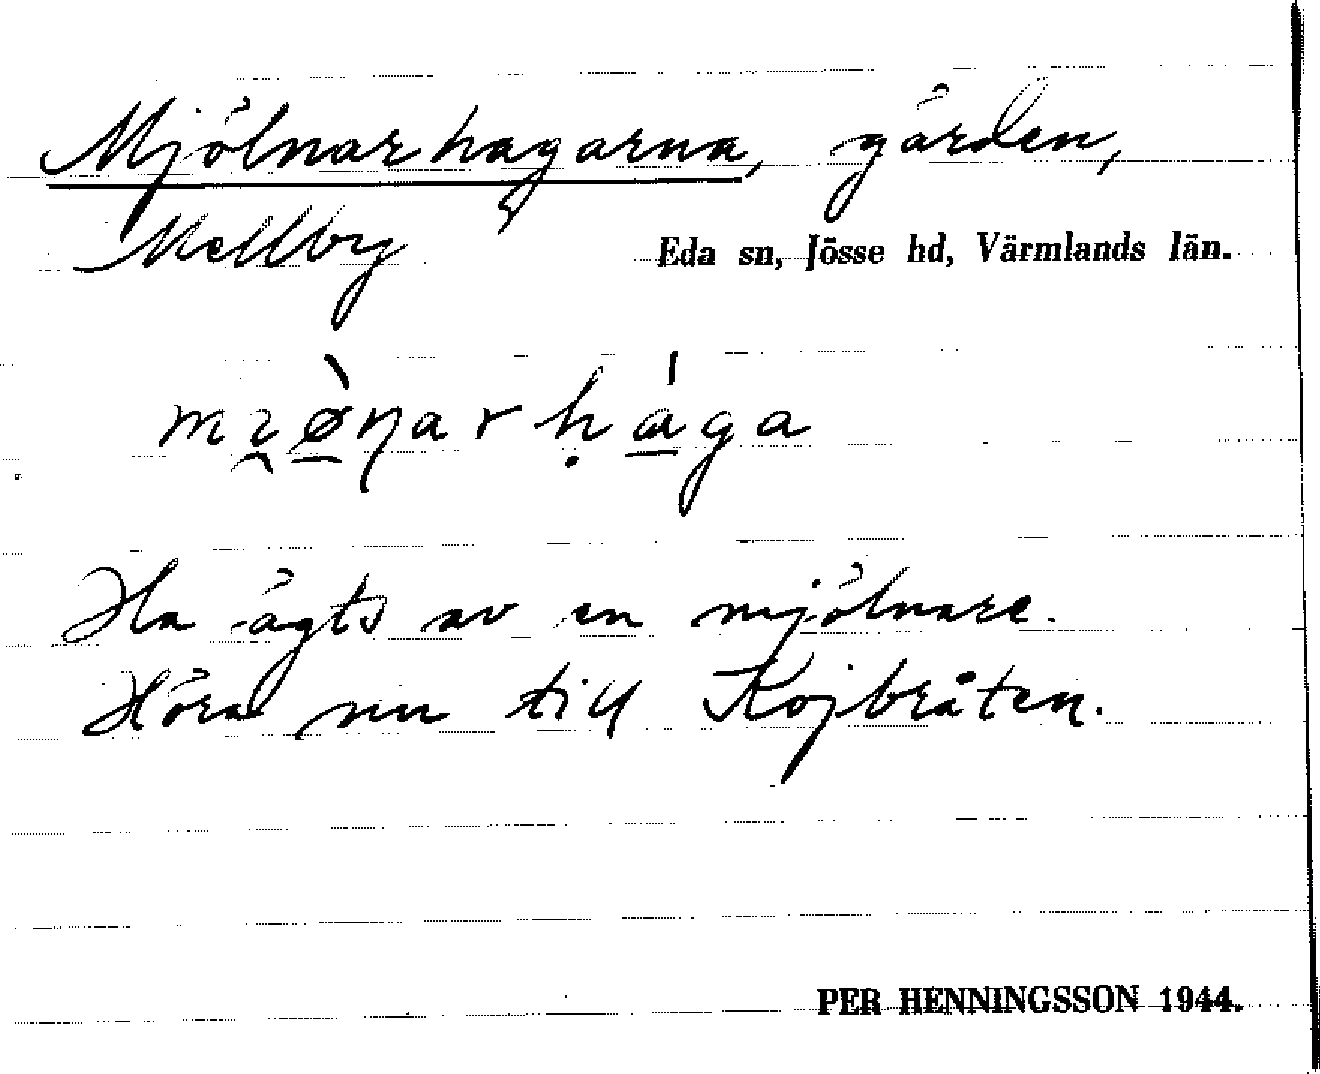 Mjölnarhagarna, gärden,
Mellby Eda sn, Jösse hd, Värmlands län.
mı̯ø̱̀ɳarḥá̱ga
Ha ägts av en mjölnare.
Höra nu till Kojbråten.
PER HENNINGSSON 1944.